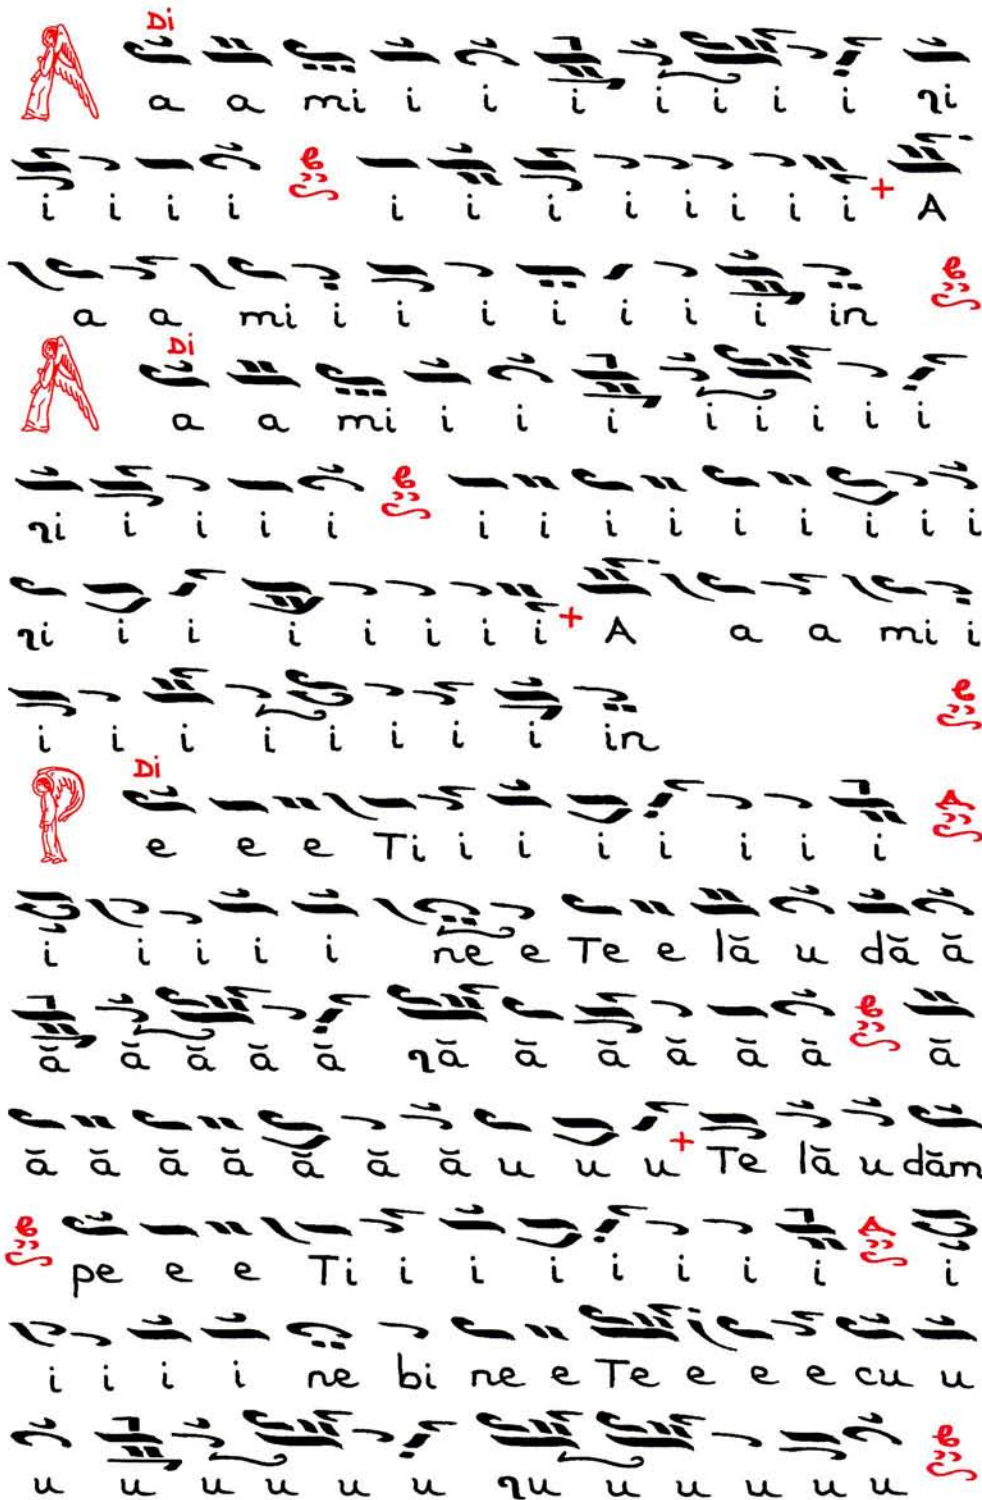 Di
A a a mi i i i i i i i ηi
i i i i i i i i i i i i + A
a a mi i i i i i i i in
Di
A a a mi i i i i i i i i
ηi i i i i i i i i i i i i i
ηi i i i i i i i + A a a mi i
i i i i i i i i in
Di
P e e e Ti i i i i i i i
i i i i i ne e Te e lă u dă ă
ă ă ă ă ă ηă ă ă ă ă ă ă
ă ă ă ă ă ă ă u u u + Te lă u dăm
pe e e Ti i i i i i i i i
i i i i ne bi ne e Te e e e cu u
u u u u u u ηu u u u u u